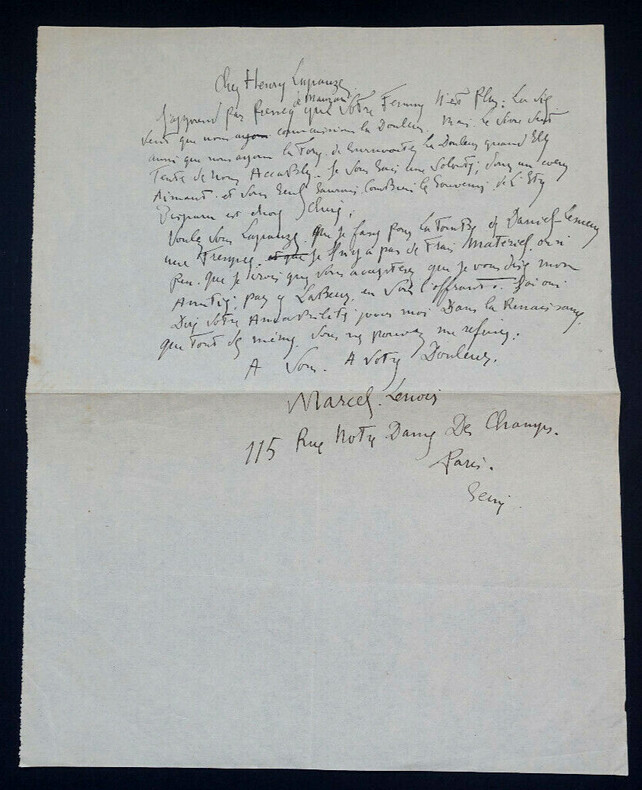 Cher Henry Lapauze
J'apprend par Francq à Manzani que votre Femme N'est Plus. La vie
veut que nous ayons connaissions la Douleur Mais le vivre veut
aussi que nous ayons la Force de Survivre à la Douleur quand Elle
Tente de Nous Accabler. Je vous sais une volonté, dans un coeur
Aimant. et vous seul saurez combien le Souvenir de l'Etre
Disparu est chose
Voulez vous Lapauze, que je fasse pour la tombe de Daniel Lesueur
une Fresque. et que je Il n'y a pas de Frais Matériel ou si
peu. que je crois que vous accepterez que je vous dise mon
Amitié, par ce Labeur en vous l'offrant. J'ai oui
Dire votre Amabilité pour moi Dans la Renaissance,
que tout de même, vous ne pouvez me refuser.
A Vous. A votre Douleur.
Marcel. Lenoir
115 Rue Notre Dame Des Champs.
Paris.